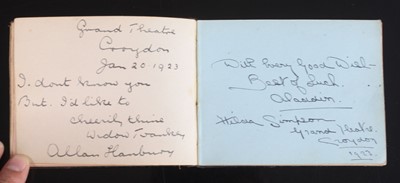 Grand Theatre
Croydon
Jan 20 1923
I dont know you
But. I'd like to
cheerily thine
Widow Twankey
Allan Hanbury
With Every Good Wish
Best of Luck.
Aladdin.
Hilda Simpson
Grand Theatre.
Croydon
1923